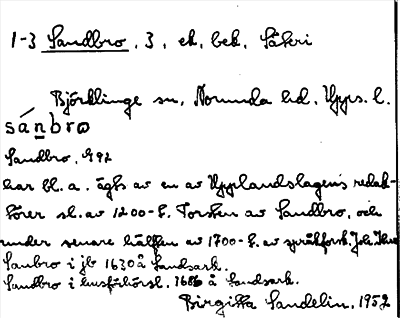 1-3 Sandbro, 3, ek. bek. Säteri
Björklinge sn, Norunda hd, Upps. l.
sánbrω
Sandbro, G 92
har bl. a. ägts av en av Upplandslagens redak-
törer sl. av 1200-t. Torsten av Sandbro, och
under senare hälften av 1700-t. av språkforsk. Joh. Ihre
Sanbro i jb 1630 å Landsark.
Sandbro i husförhörsl. å Landsark.
Birgitta Sandelin, 1952